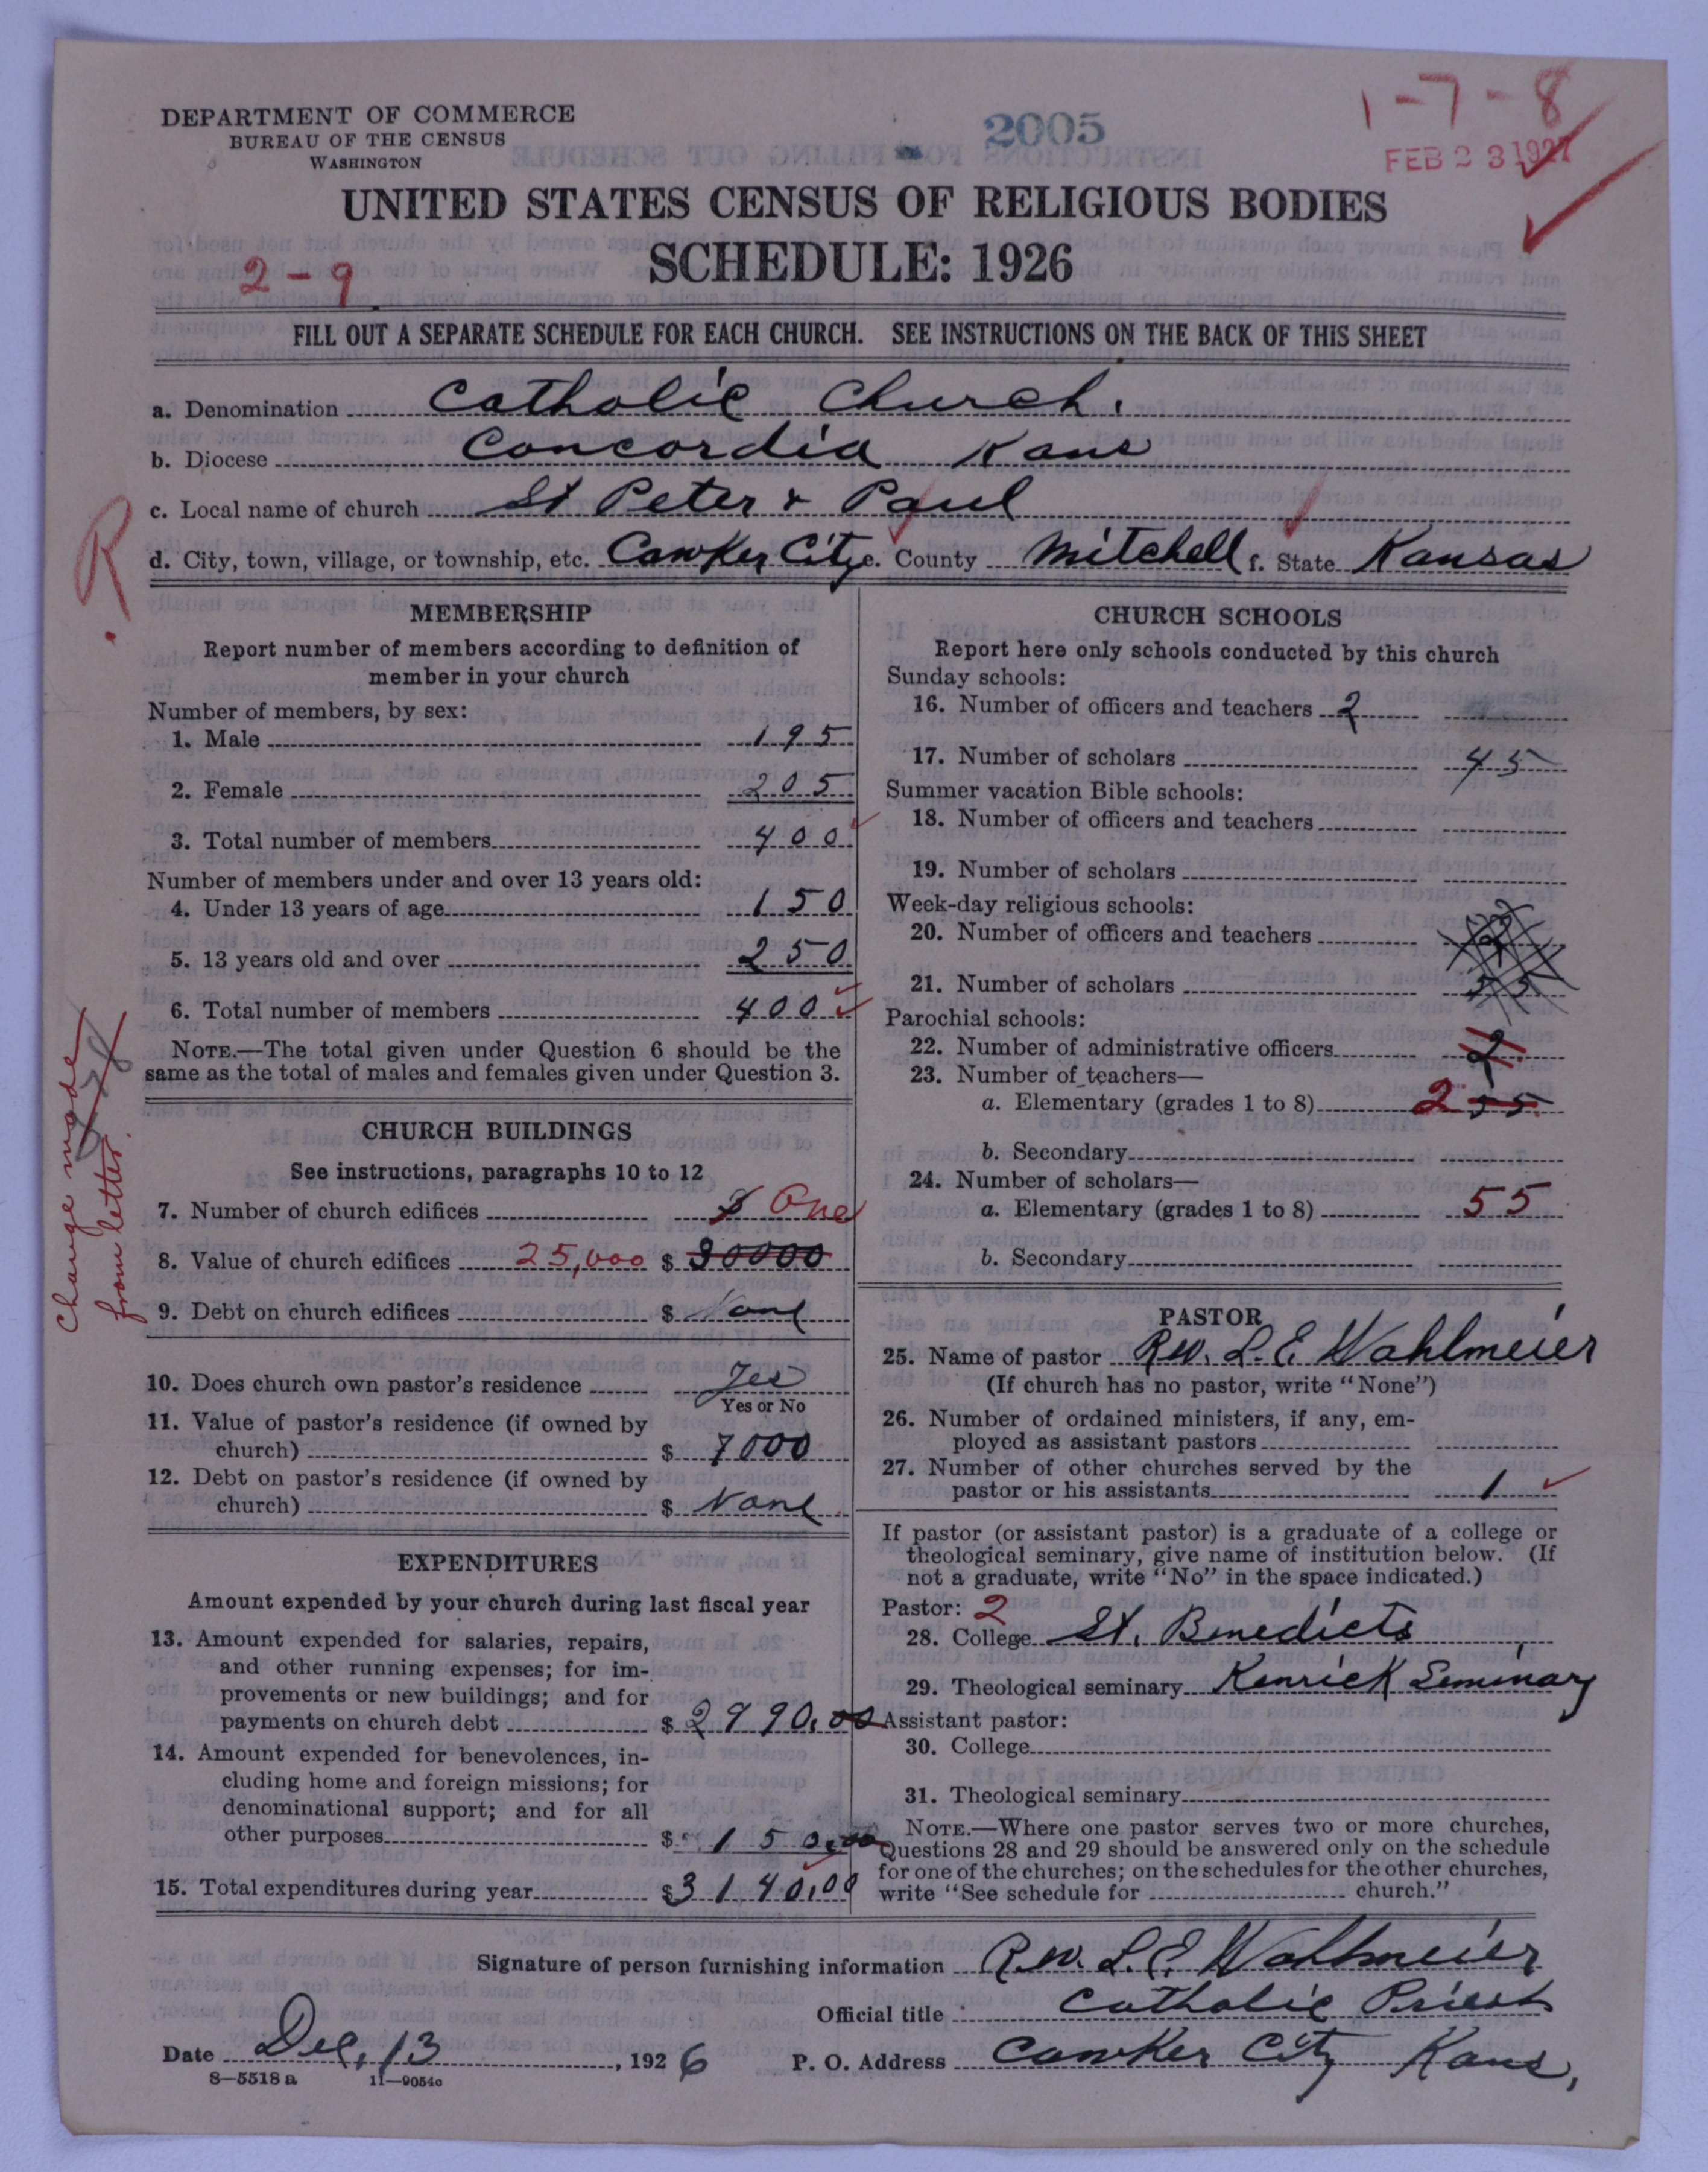 DEPARTMENT OF COMMERCE
BUREAU OF THE CENSUS
WASHINGTON
2005
1-7-8
FEB 23 1927
UNITED STATES CENSUS OF RELIGIOUS BODIES
SCHEDULE: 1926
2-9
FILL OUT A SEPARATE SCHEDULE FOR EACH CHURCH. SEE INSTRUCTIONS ON THE BACK OF THIS SHEET
a. Denomination Catholic Church.
b. Diocese Concordia Kans
c. Local name of church St Peter & Paul
R
d. City, town, village, or township, etc. Cawker City e. County Mitchell f. State Kansas
MEMBERSHIP
Report number of members according to definition of
member in your church
Number of members, by sex:
1. Male 195
2. Female 205
3. Total number of members 400
Number of members under and over 13 years old:
4. Under 13 years of age 150
5. 13 years old and over 250
6. Total number of members 400
NOTE.—The total given under Question 6 should be the
same as the total of males and females given under Question 3.
Change made
from letter
CHURCH BUILDINGS
See instructions, paragraphs 10 to 12
7. Number of church edifices One
8. Value of church edifices 25,000 $ 30000
9. Debt on church edifices $ None
10. Does church own pastor's residence Yes
Yes or No
11. Value of pastor's residence (if owned by
church) $ 7000
12. Debt on pastor's residence (if owned by
church) $ None
EXPENDITURES
Amount expended by your church during last fiscal year
13. Amount expended for salaries, repairs,
and other running expenses; for im-
provements or new buildings; and for
payments on church debt $ 2990.00
14. Amount expended for benevolences, in-
cluding home and foreign missions; for
denominational support; and for all
other purposes $ 150.00
15. Total expenditures during year $ 3140.00
CHURCH SCHOOLS
Report here only schools conducted by this church
Sunday schools:
16. Number of officers and teachers 2
17. Number of scholars 45
Summer vacation Bible schools:
18. Number of officers and teachers
19. Number of scholars
Week-day religious schools:
20. Number of officers and teachers
21. Number of scholars
Parochial schools:
22. Number of administrative officers 2
23. Number of teachers—
a. Elementary (grades 1 to 8) 2 55
b. Secondary
24. Number of scholars—
a. Elementary (grades 1 to 8) 55
b. Secondary
PASTOR
25. Name of pastor Rev. L. E. Wahlmeier
(If church has no pastor, write "None")
26. Number of ordained ministers, if any, em-
ployed as assistant pastors
27. Number of other churches served by the
pastor or his assistants 1
If pastor (or assistant pastor) is a graduate of a college or
theological seminary, give name of institution below. (If
not a graduate, write "No" in the space indicated.)
Pastor: 2
28. College St. Benedicts
29. Theological seminary Kenrick Seminary
Assistant pastor:
30. College
31. Theological seminary
NOTE.—Where one pastor serves two or more churches,
Questions 28 and 29 should be answered only on the schedule
for one of the churches; on the schedules for the other churches,
write "See schedule for church."
Signature of person furnishing information Rev. L. E. Wahlmeier
Official title Catholic Priest
Date Dec, 13, 1926 P. O. Address Cawker City Kans,
8—5518 a 11—9054c